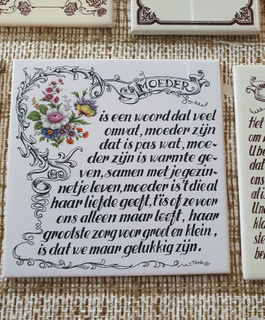 MOEDER
is een woord dat veel
omvat, moeder zijn
dat is pas wat, moe-
der zijn is warmte ge-
ven, samen met je gezin-
netje leven, moeder is't die al
haar liefde geeft, 't is of ze voor
ons alleen maar leeft, haar
grootste zorg voor groot en klein,
is dat we maar gelukkig zijn.
Het
om
U be
dal
an